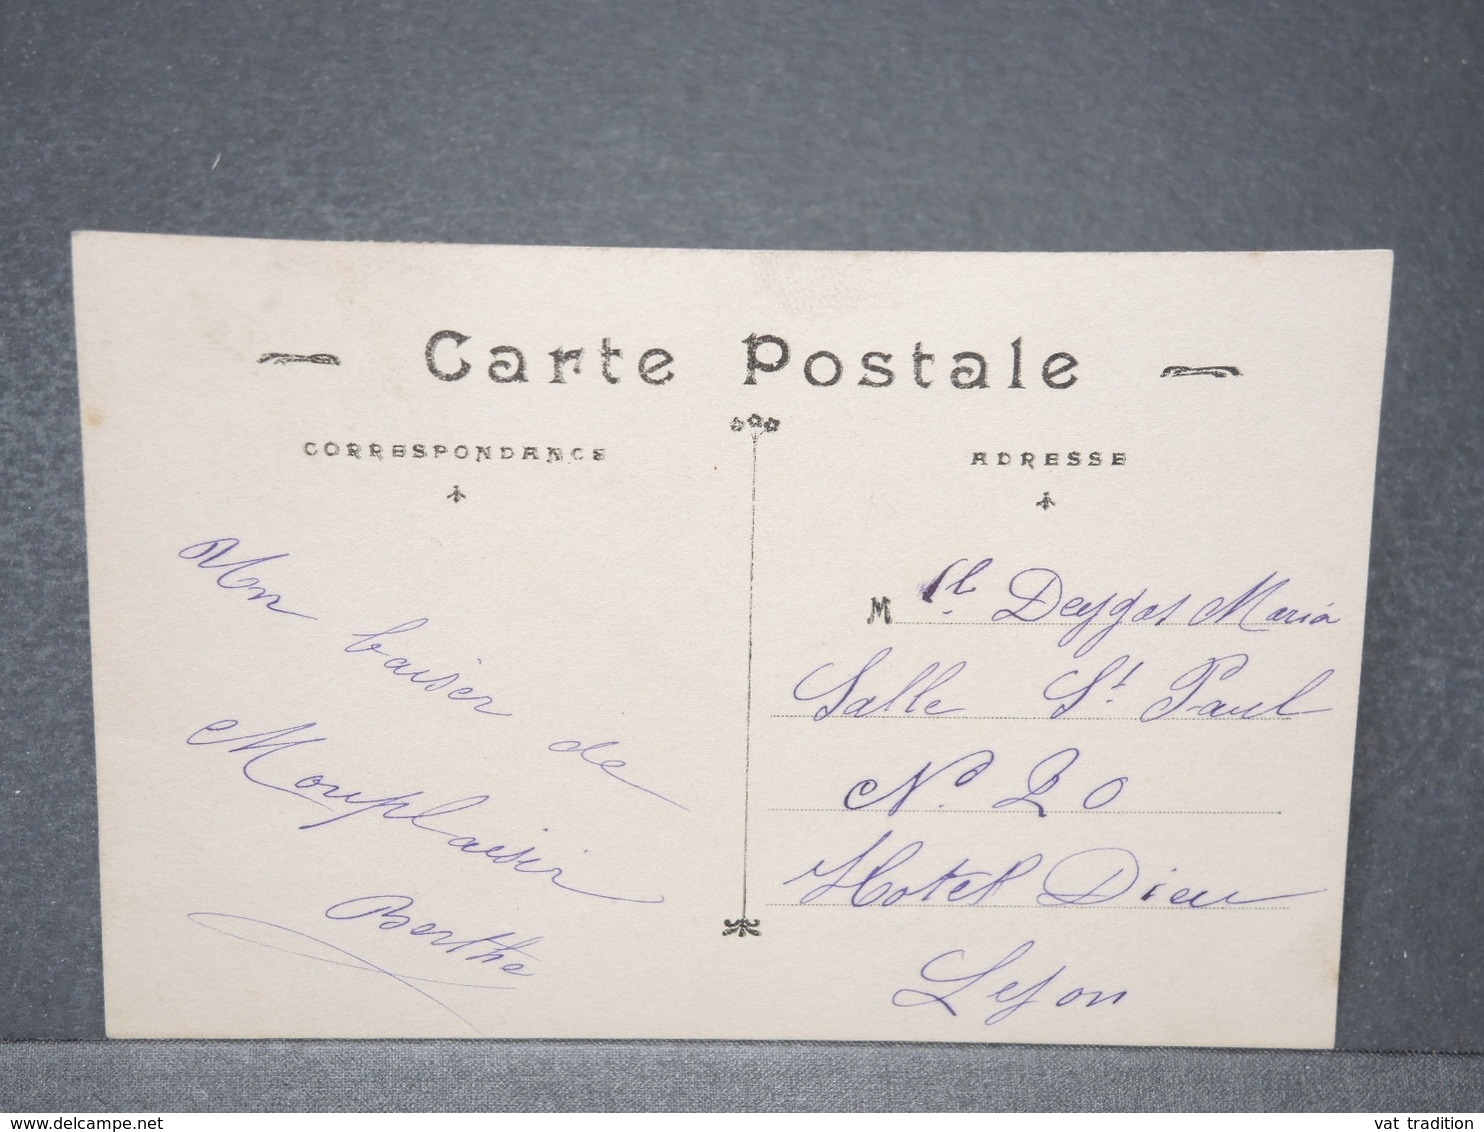 Carte Postale
CORRESPONDANCE
ADRESSE
Un baiser de
Monplaisir
Berthe
M lle Deygas Maria
Salle St Paul
N° 20
Hotel Dieu
Lyon
vat tradition
www.delcampe.net